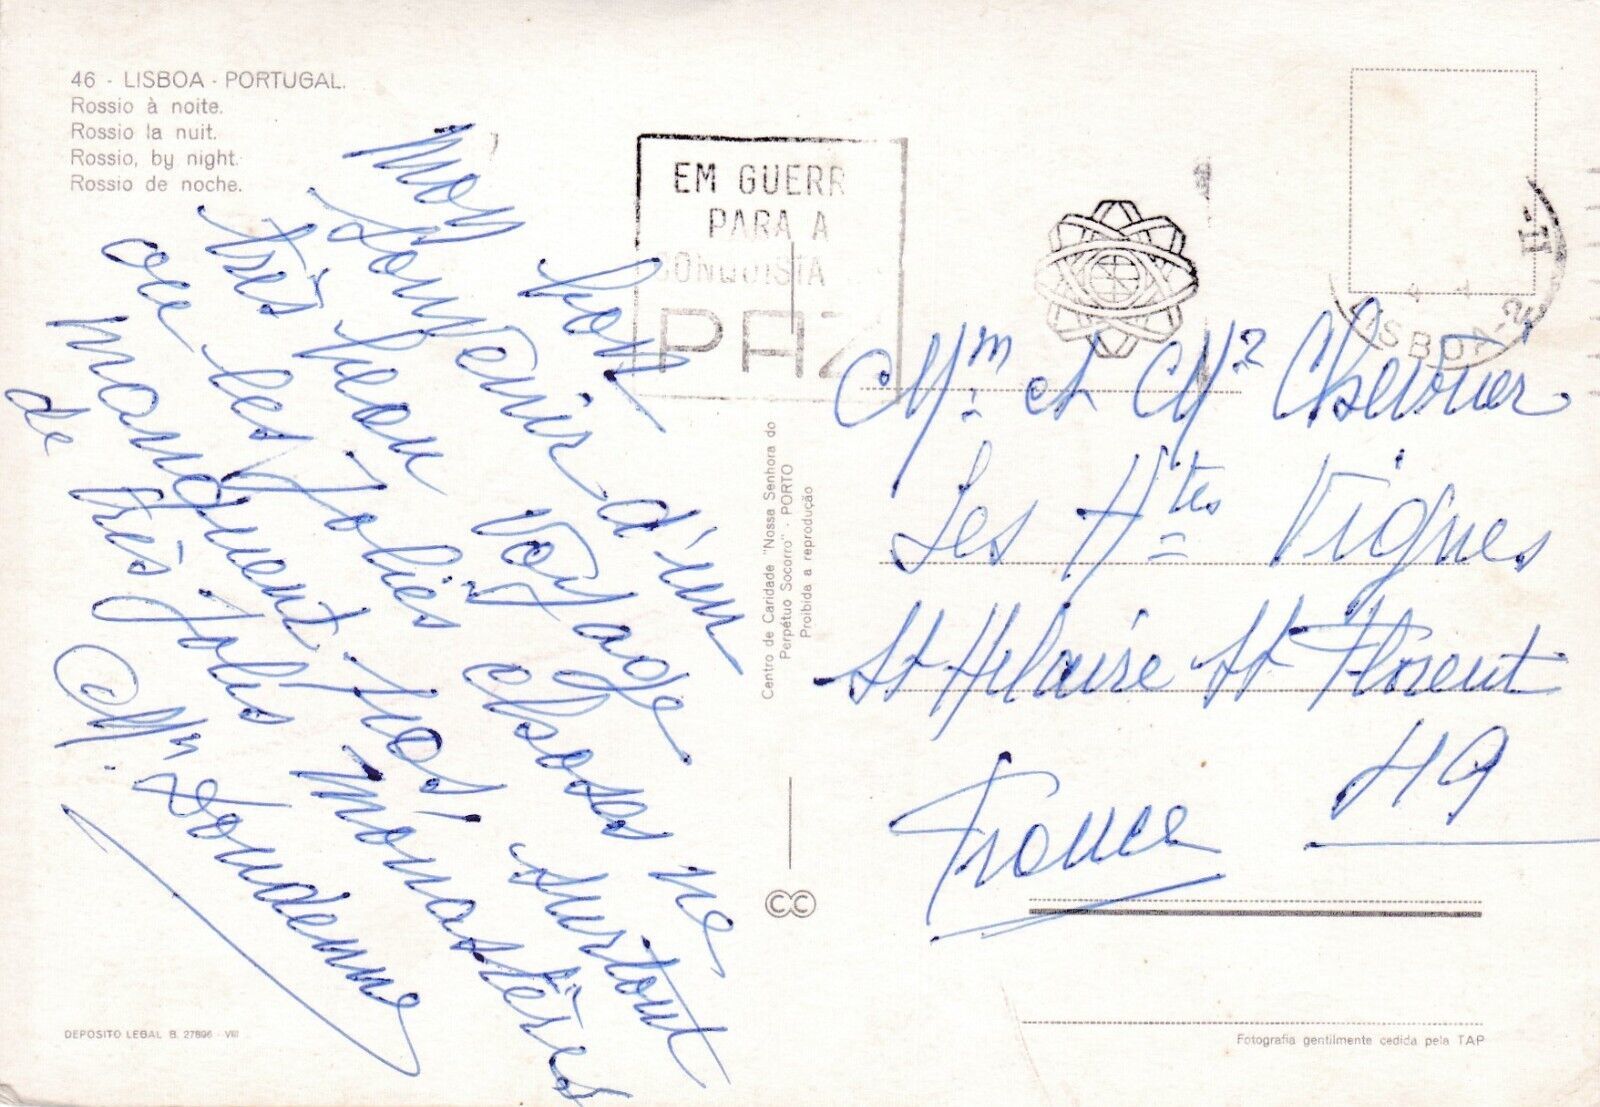 46 - LISBOA - PORTUGAL.
Rossio à noite.
Rossio la nuit.
Rossio, by night.
Rossio de noche.
Mon bon
souvenir d'un
très beau voyage
où les jolies choses ne
manquent pas, surtout
de très jolis monastères
EM GUERR
PARA A
CONQUISTA
PAZ
LISBOA-2
Mm et Mr Chevrier
Les Htes Vignes
St Hilaire St Florent
49
France
Centro de Caridade "Nossa Senhora do
Perpétuo Socorro" - PORTO
Proibida a reprodução
CC
DEPOSITO LEGAL B. 27896 - VIII
Fotografia gentilmente cedida pela TAP